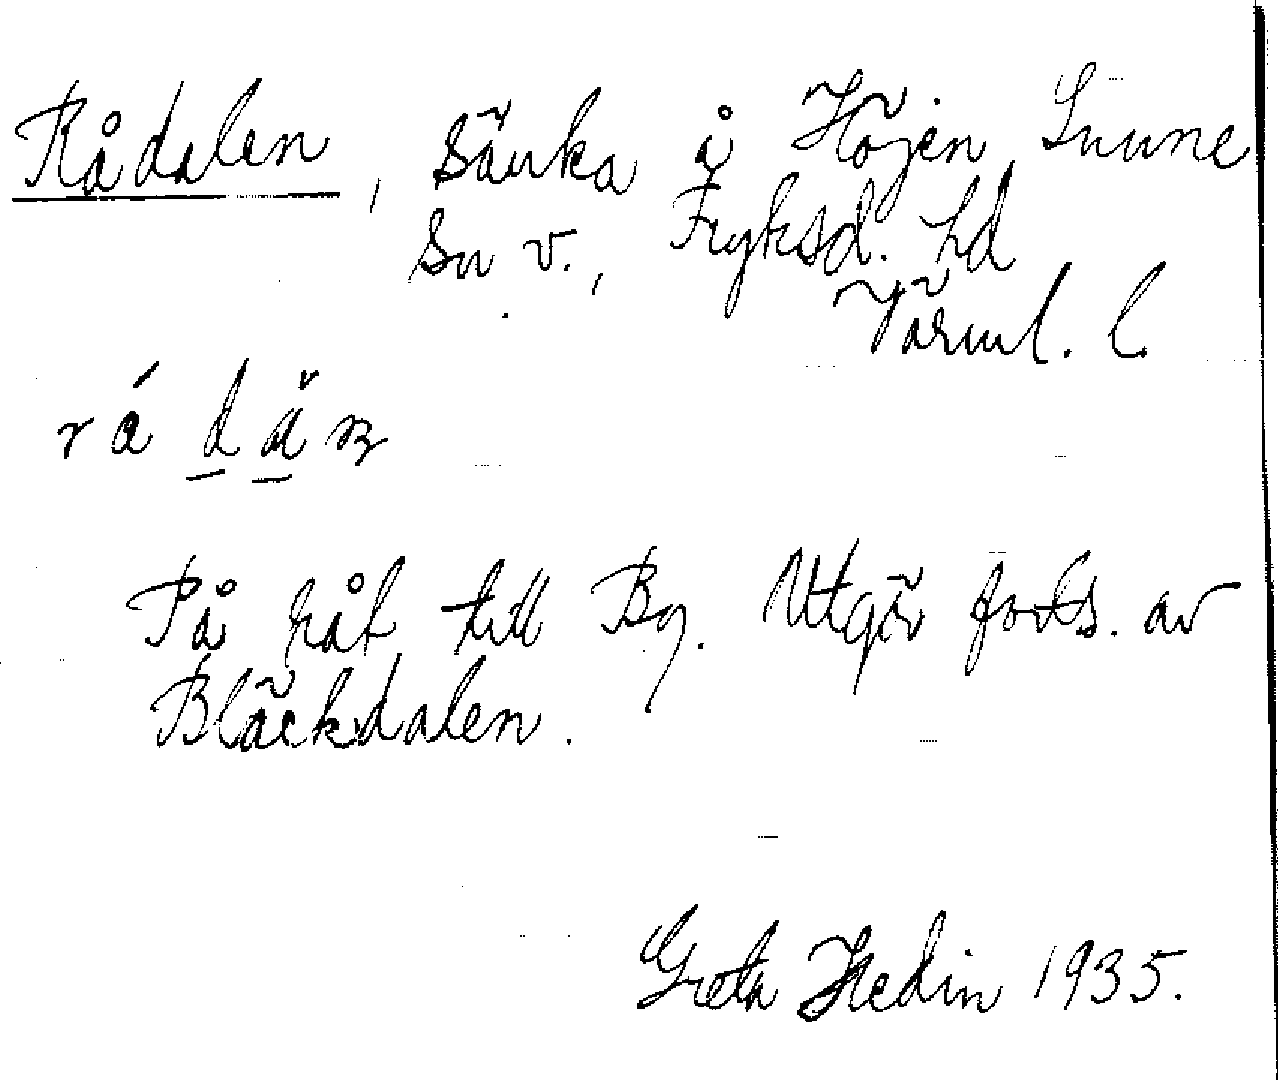 Rådalen, Sänka å Höjen, Sunne
Sn v., Fryksd. hd
Värml. l.
På håll till By. Utgör forts. av
Bläckdalen.
Greta Hedin 1935.